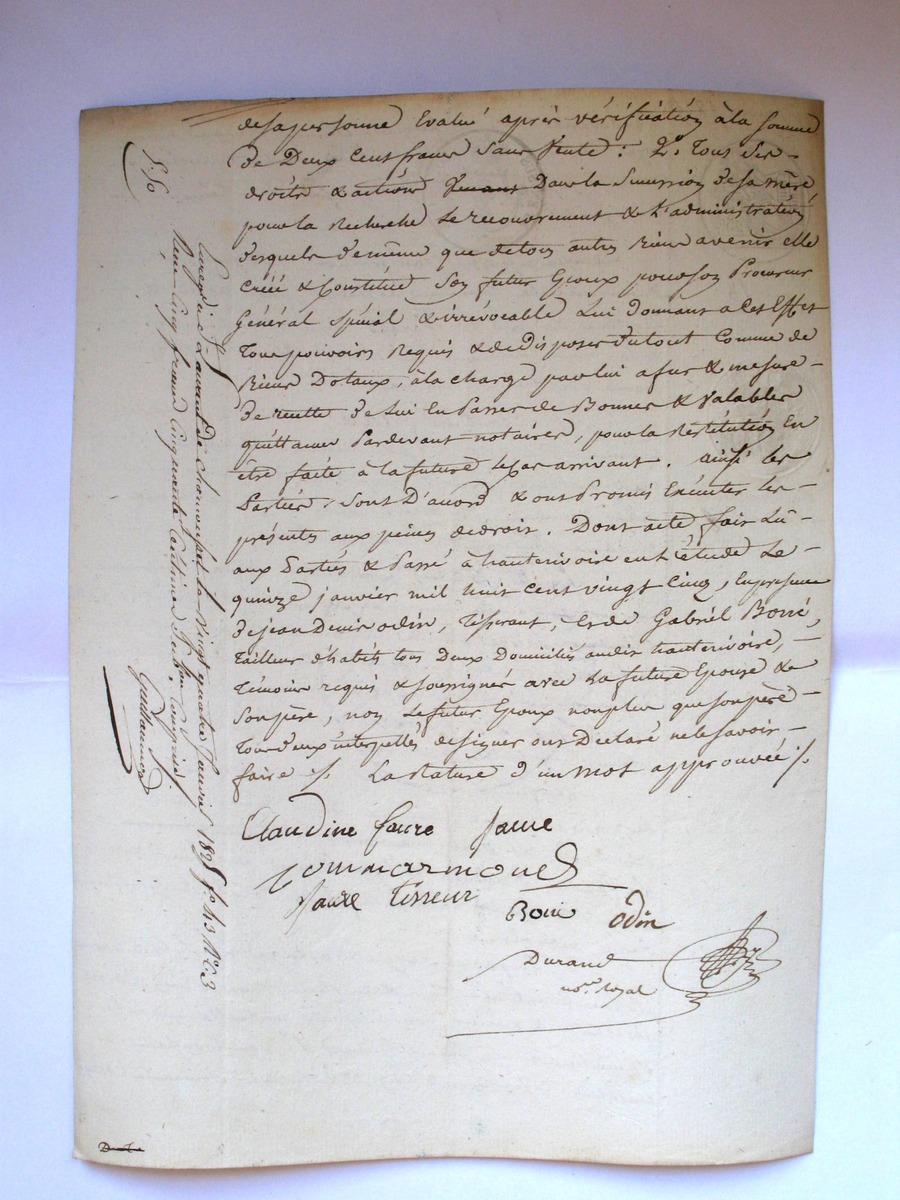 de sa personne Evalué après vérification à la somme
de Deux Cent francs sans vente : 2.º Tous ses
droits & actions venant Dans la Succession de sa mère
pour la Recherche le recouvrement & L'administration
desquels de même que de tous autres Biens avenir elle
Créé & Constitue Son futur Epoux pour son Procureur
Général spécial & irrévocable Lui Donnant a Cet Effet
Tous pouvoirs Requis & de Disposer du tout Comme de
Biens Dotaux, à la charge par lui a fur & mesure
De recette de lui En Passer de Bonnes & Valables
quittances Pardevant notaires, pour la Restitution En
être faite à la future le Cas arrivant. ainsi les
Parties Sont D'accord & ont Promis Exécuter les
présentes aux peines de droit. Dont acte fait Lu
aux Parties & Passé à hauterivoire en l'étude Le
quinze janvier mil huit cent vingt cinq, En presence
de jean Denis odin, Tisserant, & de Gabriel Borié,
Tailleur d'habits tous Deux Domiciliés audit hauterivoire,
Témoins requis & soussignés avec La future Epouse &
Son père, non Le futur Epoux non plus que son père
Tous d'eux interpellés de signer ont Déclaré ne le savoir
faire ./. La Rature d'un mot approuvée ./.
Claudine faure faure
faure Tisseur
Borié odin
Durand
no.re royal
Enregé à St. Laurent de Chamousset le Vingt quatre Janvier 1825 fo. 43 No. C. 3
Reçu Cinq francs Cinquante Centimes
Guillaume
5.50